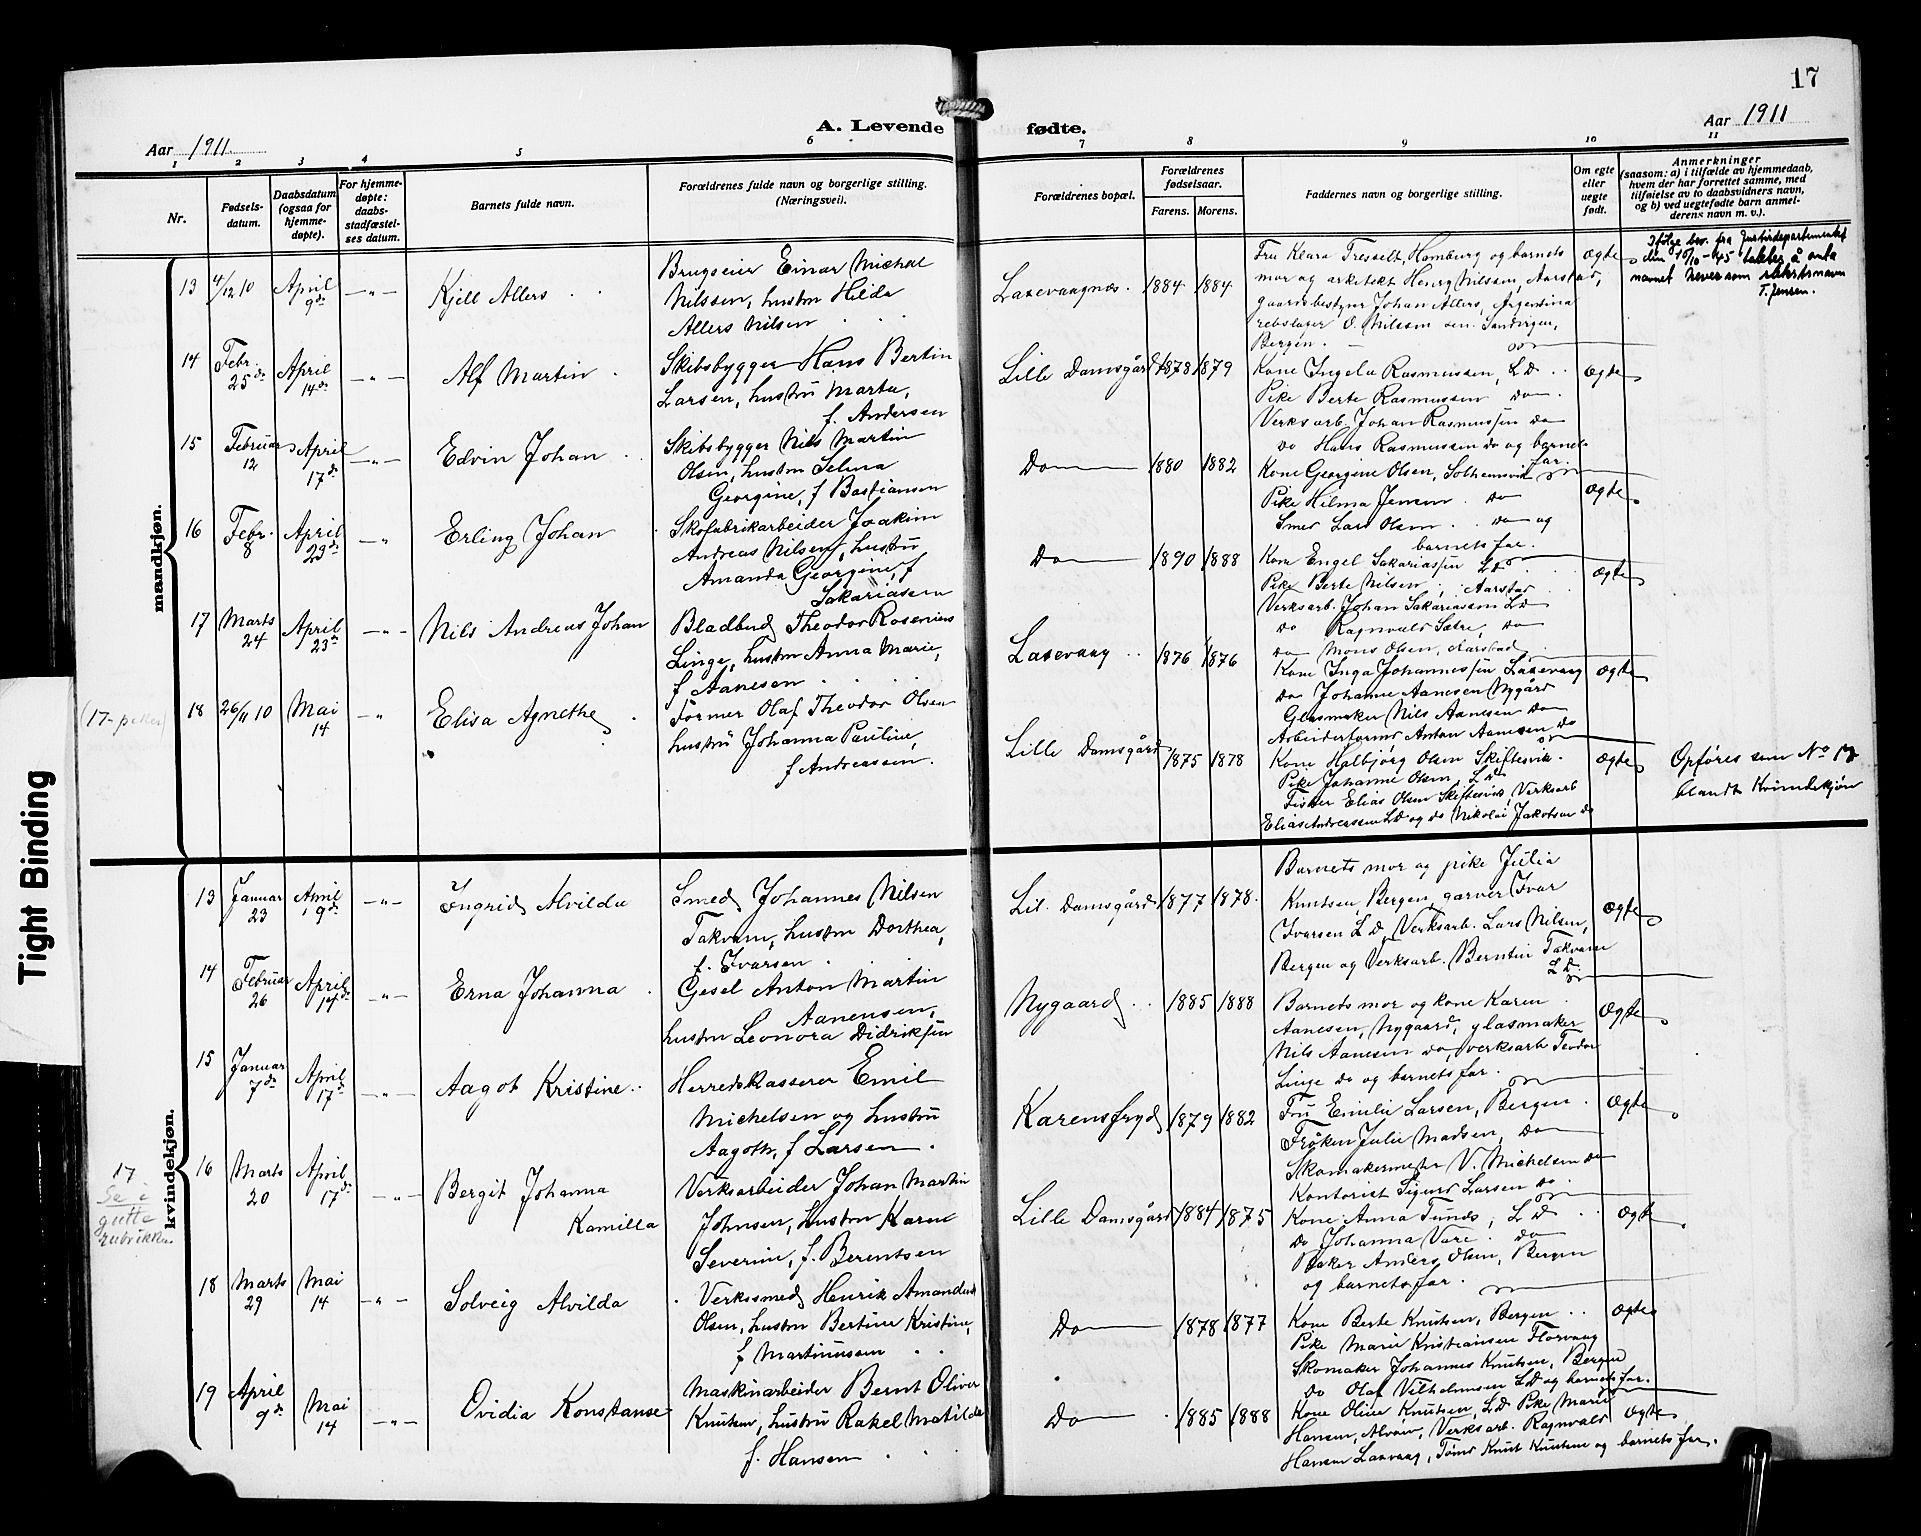 17
A. Levende fødte.
Aar 1911
Aar 1911
1 2 3 4 5 6 7 8 9 10 11
Nr.
Fødsels-
datum.
Daabsdatum
(ogsaa for
hjemme-
døpte).
For hjemme-
døpte:
daabs-
stadfæstel-
ses datum.
Barnets fulde navn.
Forældrenes fulde navn og borgerlige stilling.
(Næringsvei).
Forældrenes bopæl.
Forældrenes
fødselsaar.
Farens. Morens.
Faddernes navn og borgerlige stilling.
Om egte
eller
uegte
født.
Anmerkninger
(saasom: a) i tilfælde av hjemmedaab,
hvem der har forrettet samme, med
tilføielse av to daabsvidners navn,
og b) ved uegtefødte barn anmel-
derens navn m. v.).
mandkjøn.
13 4/12 10 April 9de -"- Kjell Allers
Brugseier Einar Michael
Nilssen, hustru Hilda
Allers Nilsen
Laxevaagnes. 1884 1884
Fru Klara Tresselt, Hamburg og barnets
mor og arkitekt Henry Nilssen, Aarstad,
gaardsbestyrer Johan Allers, Argentina
rebslager O. Nilssen sen. Sandvigen,
Bergen.
Ogte
Ifølge bev. fra Justisdepartementet
den 10/10-45 tillates å anta
navnet som slektsnavn
T. Jensen.
14 Febr. 25de April 14de -"- Alf Martin
Skibsbygger Hans Bertin
Larsen, hustru Marta,
f. Andersen
Lille Damsgård 1878 1879
Kone Ingela Rasmussen, L D
Pike Berte Rasmussen do
Verksarb. Johan Rasmussen do
do Hans Rasmussen do og barnets
far.
Ogte
15 Februar 12 April 17de -"- Edvin Johan
Skibsbygger Nils Martin
Olsen, hustru Selma
Georgine, f Bastiansen
Do 1880 1882
Kone Georgine Olsen, Solheimsvik
Pike Hilma Jensen do
Smed Lars Olsen do og
barnets far.
Ogte
16 Febr. 8 April 23de -"- Erling Johan
Skofabrikarbeider Joakim
Andreas Nilsen, hustru
Amanda Georgine, f
Sakariasen
Do 1890 1888
Kone Engel Sakariassen L D
Pike Berte Nilsen, Aarstad
Verksarb. Johan Sakariassen L D
do Ragnvald Sætre, do
do Mons Olsen, Aarstad
Ogte
17 Marts 24 April 23de -"- Nils Andreas Johan
Bladbud Theodor Rosenius
Linge, hustru Anna Marie,
f Aanesen
Laxevaag 1876 1876
Kone Inga Johannessen Laxevaag
do Johanne Aanesen Nygård
Glasmaker Nils Aanesen do
Arbeiderformd Anton Aanesen do
Ogte
(17-piker)
18 26/11 10 Mai 14 -"- Elisa Agnethe
Former Olaf Theodor Olsen
hustru Johanna Pauline,
f Andreassen.
Lille Damsgård 1875 1878
Kone Halbjørg Olsen Skiftesvik.
Pike Johanne Olsen, L D
Fisker Elias Olsen Skiftesvik, Verksarb
Elias Andreassen L D og do Nikolai Jakobsen do
Ogte
Opføres som No 17
blandt Kvindekjøn
kvindekjøn.
13 Januar 23 April 9de -"- Ingrid Alvilda
Smed Johannes Nilsen
Takvam, hustru Dorthea,
f. Ivarsen
Lil. Damsgård 1877 1878.
Barnets mor og pike Julia
Knutsen, Bergen, garver Ivar
Ivarsen L D, Verksarb. Lars Nilsen,
Bergen og Verksarb. Berntin Takvam
L D.
Ogte
14 Februar 26 April 14de -"- Erna Johanna
Gesel Anton Martin
Aanensen,
hustru Leonora Didriksen
Nygaard 1885 1888
Barnets mor og kone Karen
Aanesen, Nygaard, glasmaker
Nils Aanesen do, verksarb Teodor
Linge do og barnets far.
Ogte
15 Januar 7de April 17de -"- Aagot Kristine
Herredskasserer Emil
Michelsen og hustru
Aagoth, f Larsen
Karensfryd 1879 1882
Fru Emilie Larsen, Bergen
Frøken Julie Madsen, do
Skomakermester V. Michelsen do
Kontorist Sigurd Larsen do.
Ogte
16 Marts 20 April 17de -"- Bergit Johanna
Kamilla
Verksarbeider Johan Martin
Johnsen, hustru Karen
Severine, f. Berentsen
Lille Damsgård 1884 1875
Kone Anna Tunes, L D
Do Johanna Vare do
Baker Anders Olsen, Bergen
og barnets far.
Ogte
17
Se i
gutte
rubrikken
18 Marts 29 Mai 14 -"- Solveig Alvilda
Verkssmed Henrik Amandus
Olsen, hustru Bertine Kristine,
f Martinussen
Do 1878 1877
Kone Berte Knutsen, Bergen
Pike Marie Kristiansen Florvaag
Skomaker Johannes Knutsen, Bergen
do Olaf Vilhelmsen L D og barnets far.
Ogte
19 April 9de Mai 14 -"- Ovidia Konstanse
Maskinarbeider Bernt Oliver
Knutsen, hustru Rakel Matilde
f. Hansen
Do 1885 1888
Kone Oline Knutsen, L D Pike Marie
Hansen, Alvøen, Verksarb. Ragnvald
Hansen Laxevaag, Tømr Knut Knutsen og barnets far.
Ogte
Tight Binding